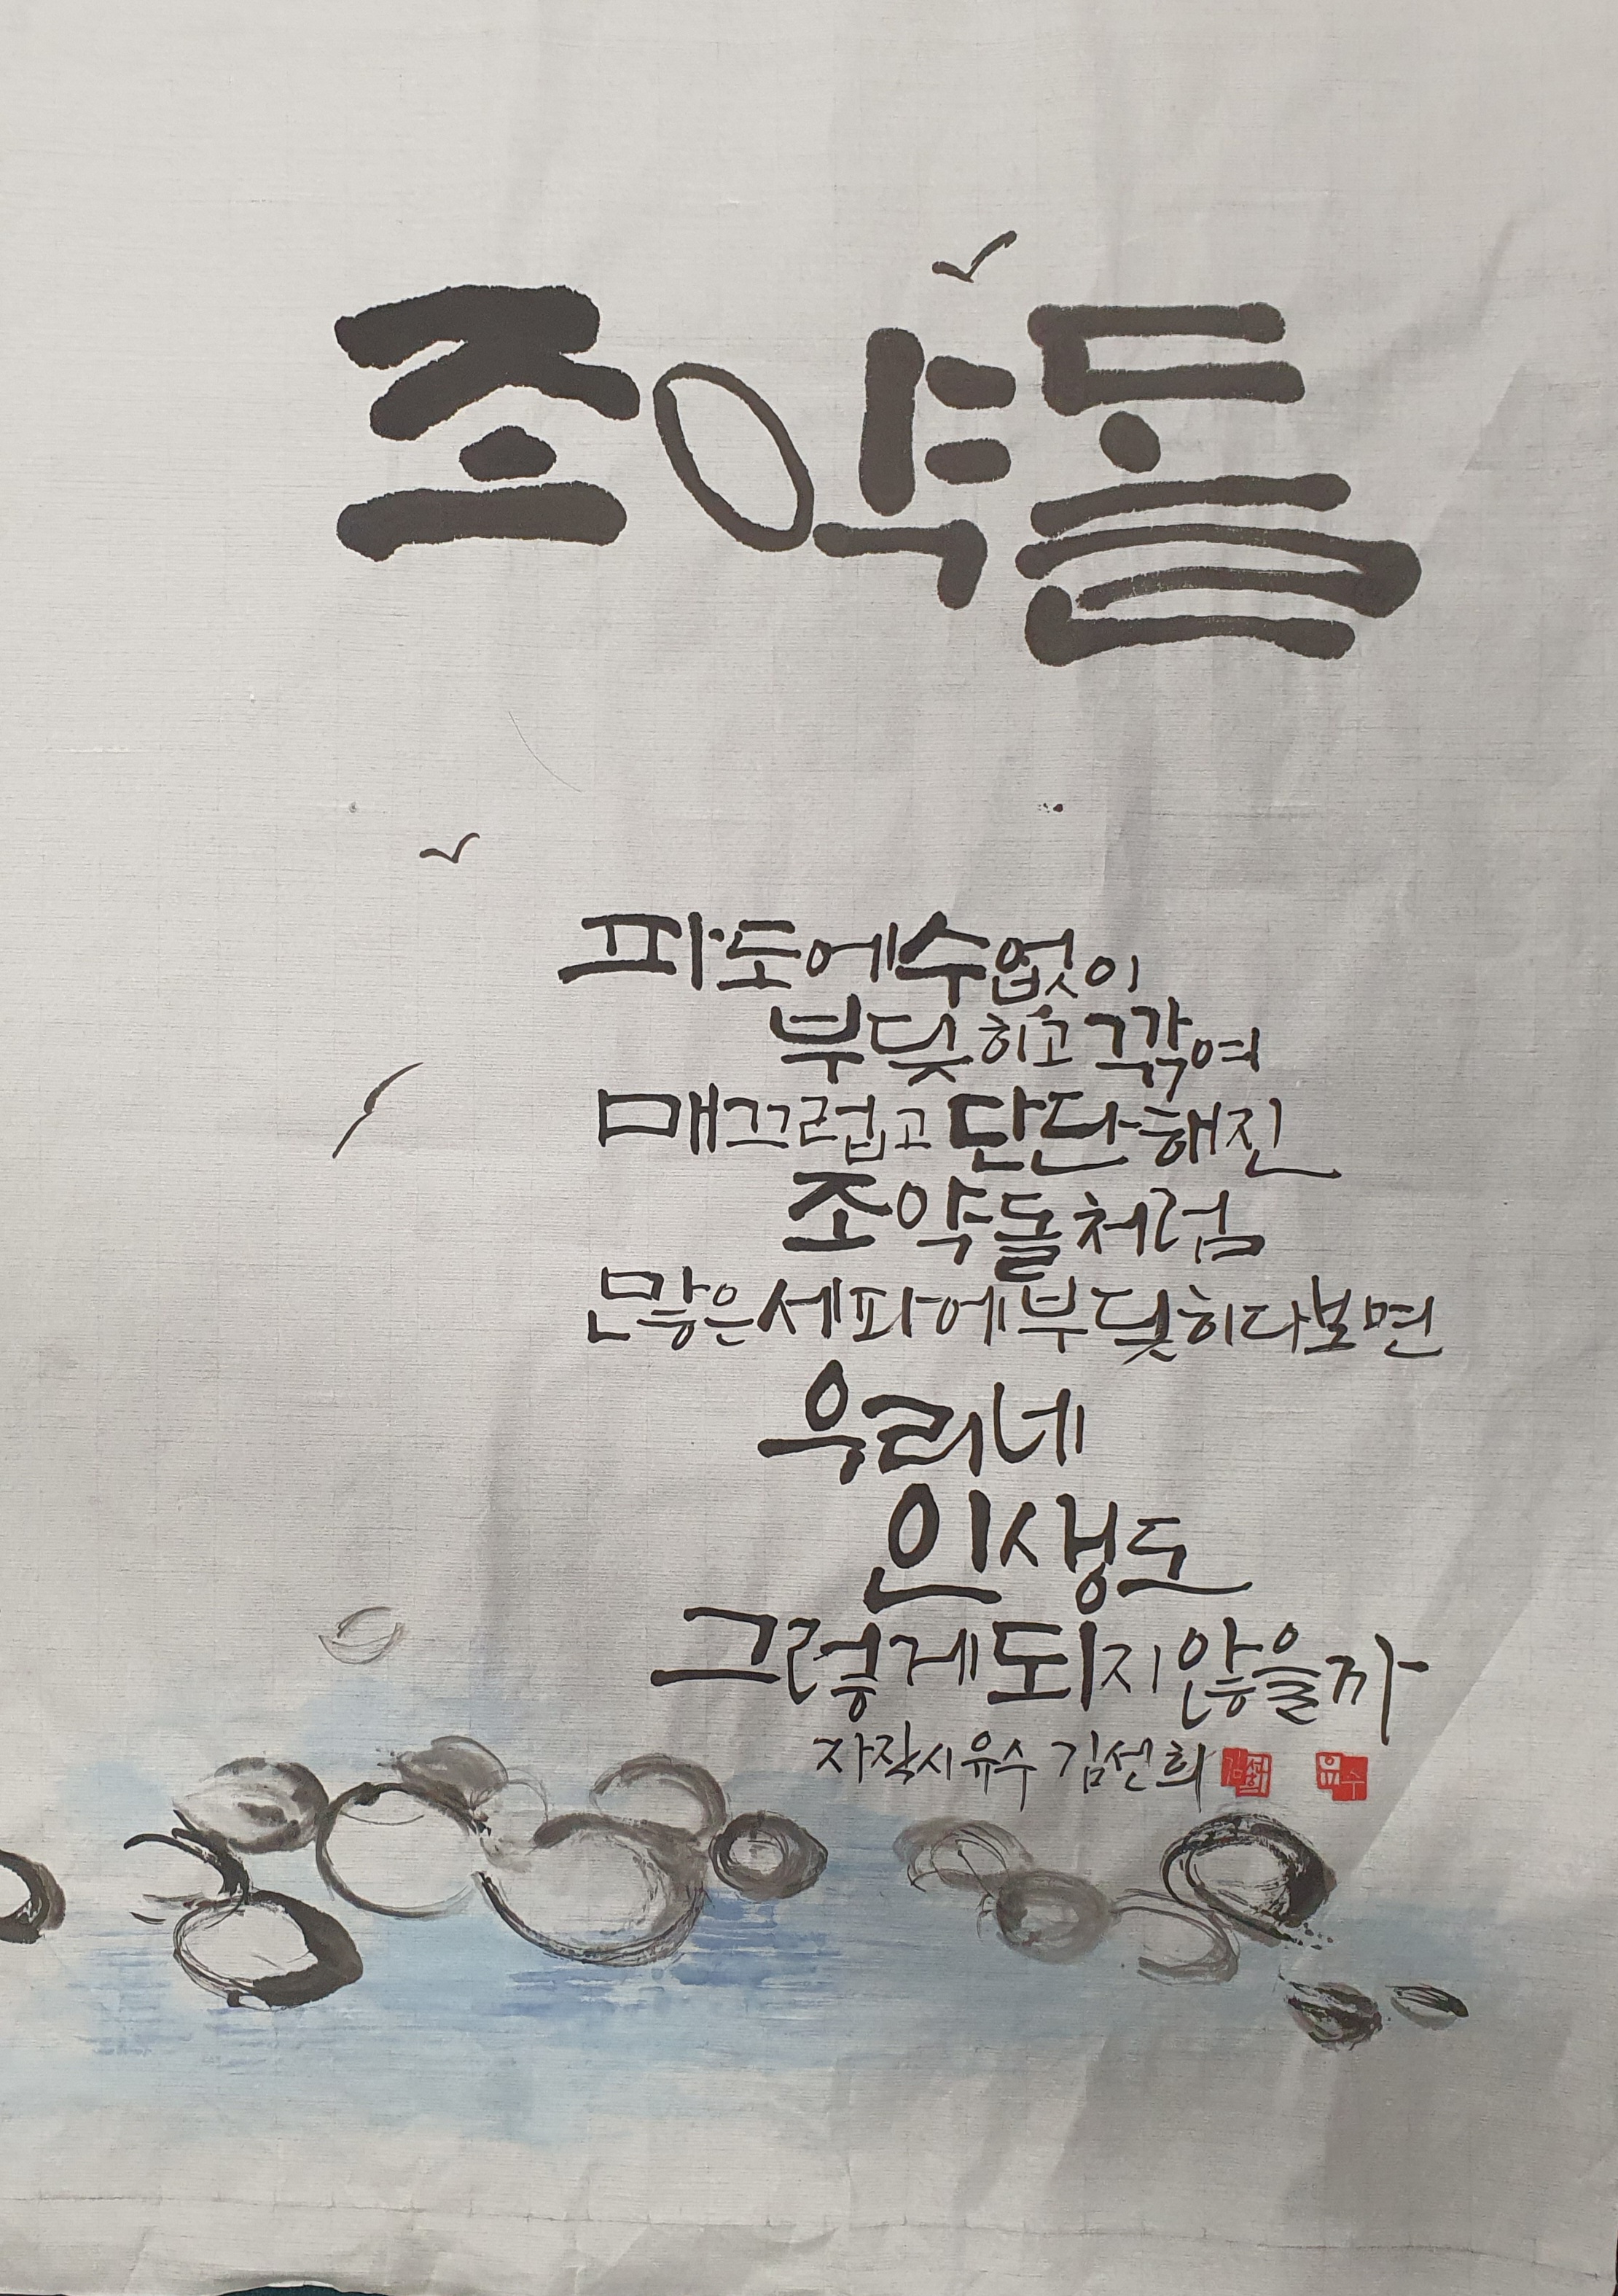 조약돌
파도에 수없이
부딪히고 깎여
매끄럽고 단단해진
조약돌처럼
많은 세파에 부딪히다보면
우리네
인생도
그렇게 되지 않을까
자작시 유수 김선희 김선희 유수